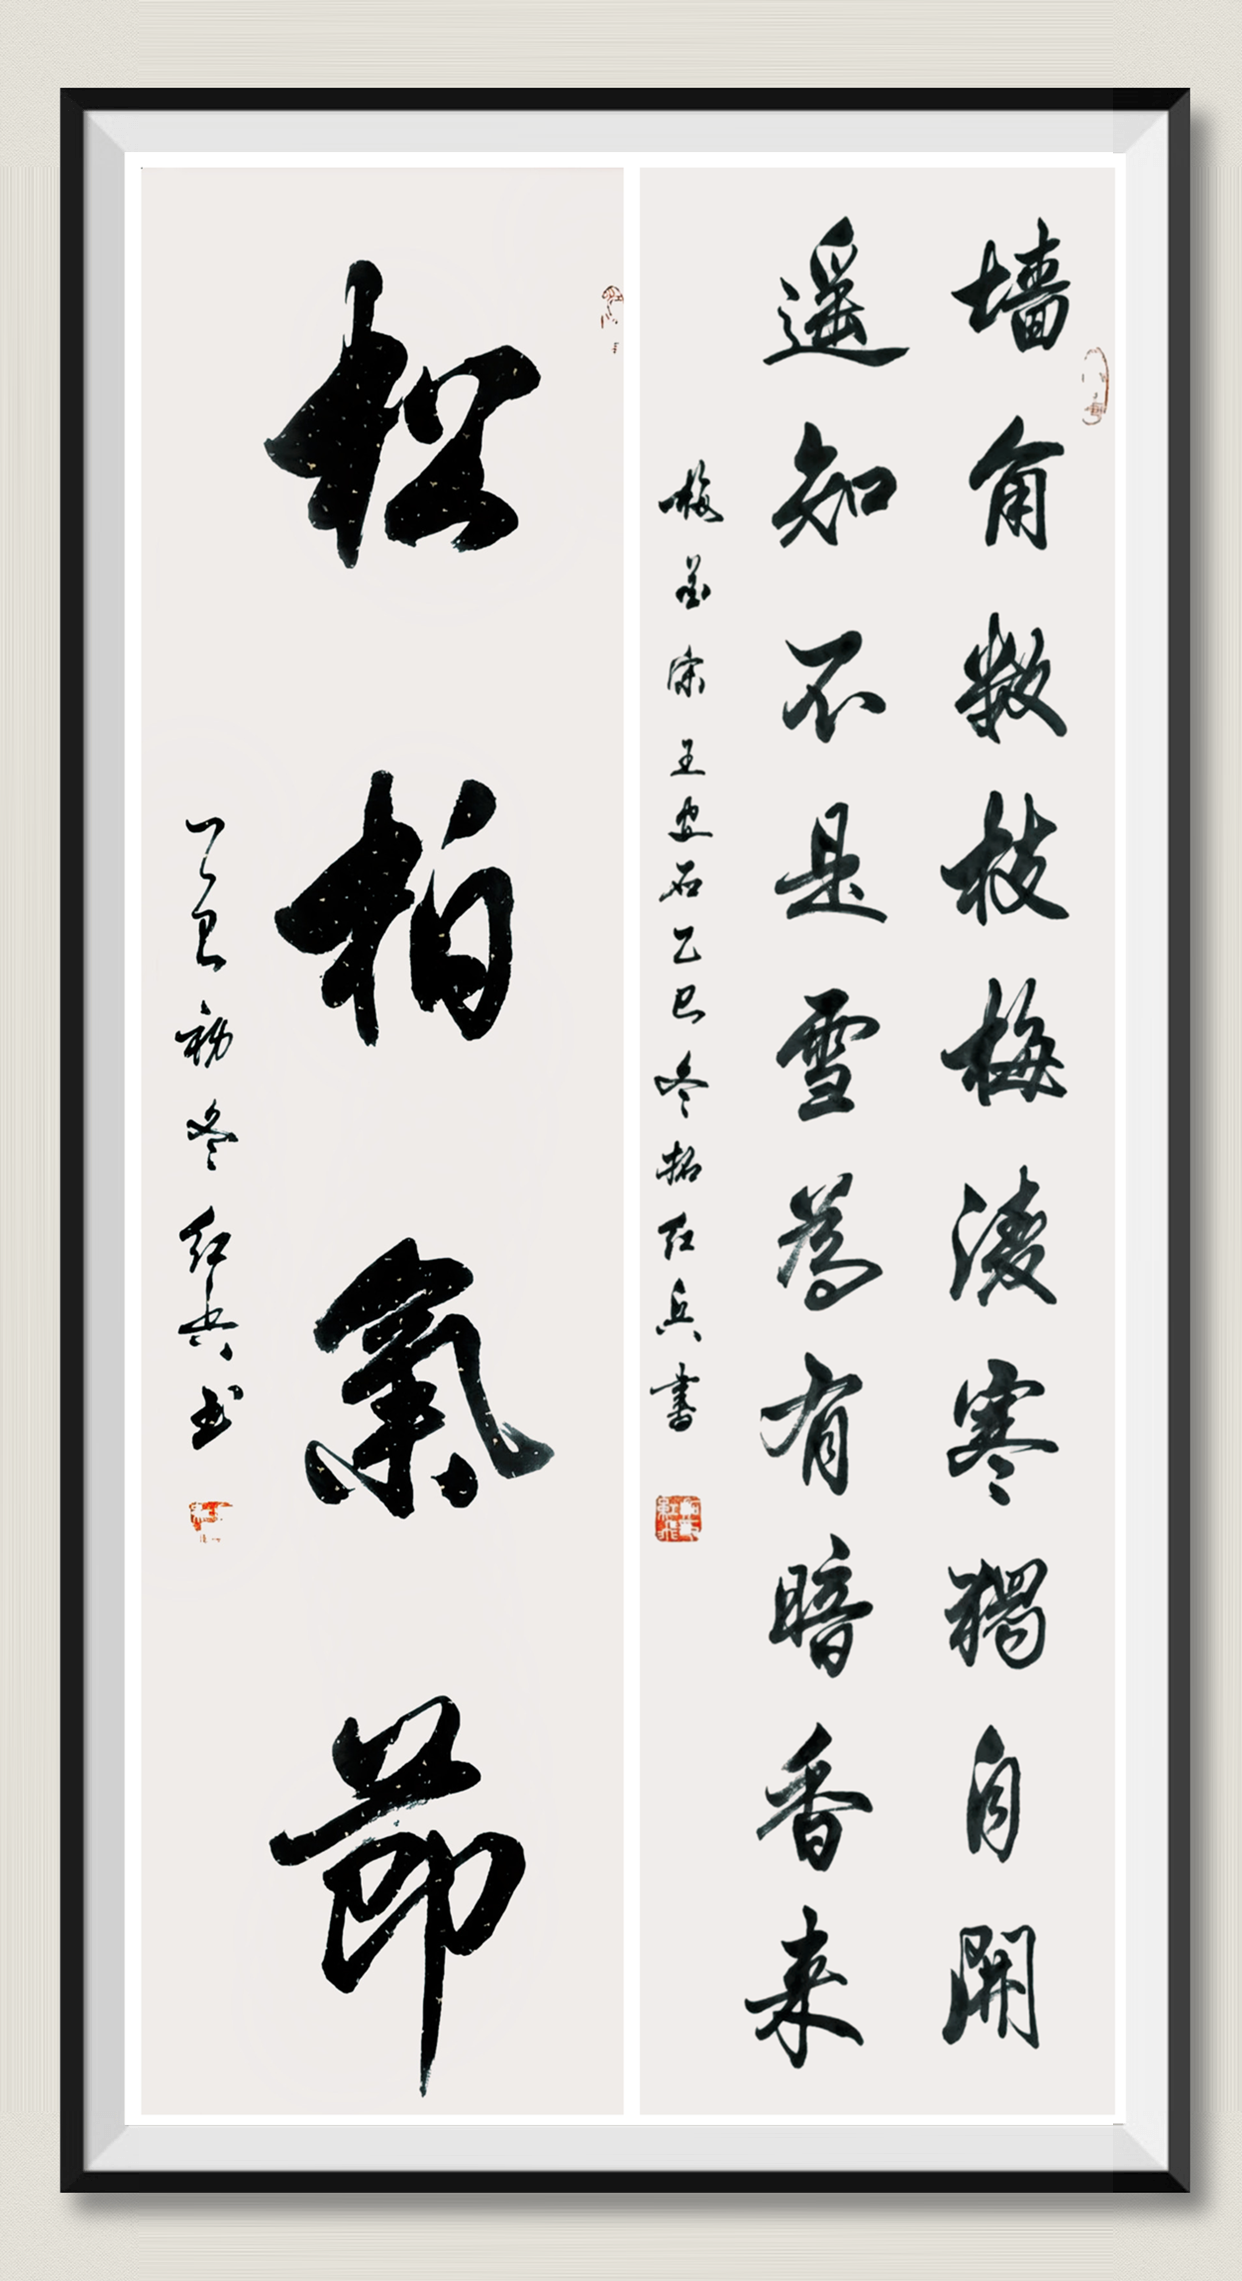 墙角数枝梅淩寒獨自開
遥知不是雪為有暗香来
梅花宋王安石乙巳冬拓红兵書
松柏氣節
乙巳初冬红兵书